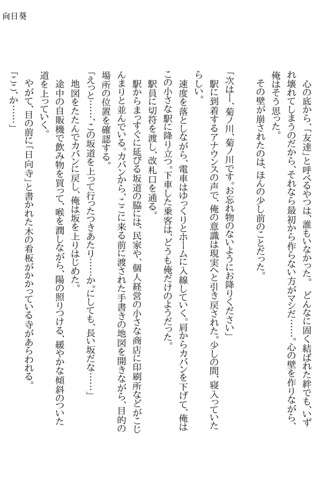 向日葵
　心の底から、「友達」と呼べるやつは、誰もいなかった。どんなに固く結ばれた絆でも、いず
れ壊れてしまうのだから、それなら最初から作らない方がマシだ……。心の壁を作りながら、
俺はそう思った。
　その壁が崩されたのは、ほんの少し前のことだった。
「次は─、菊ノ川、菊ノ川です。お忘れ物のないようにお降りください」
　駅に到着するアナウンスの声で、俺の意識は現実へと引き戻された。少しの間、寝入っていた
らしい。
　速度を落としながら、電車はゆっくりとホームに入線していく。肩からカバンを下げて、俺は
この小さな駅に降り立った。下車した乗客は、どうも俺だけのようだった。
　駅員に切符を渡し、改札口を通る。
　駅からまっすぐに延びる坂道の脇には、民家や、個人経営の小さな商店に印刷所などがこじ
んまりと並んでいる。カバンから、ここに来る前に渡された手書きの地図を開きながら、目的の
場所の位置を確認する。
「えっと……、この坂道を上って行ったつきあたり……か。にしても、長い坂だな……」
　地図をたたんでカバンに戻し、俺は坂を上りはじめた。
　途中の自販機で飲み物を買って、喉を潤しながら、陽の照りつける、緩やかな傾斜のついた
道を上っていく。
　やがて、目の前に「日向寺」と書かれた木の看板がかかっている寺があらわれる。
「ここ、か……」